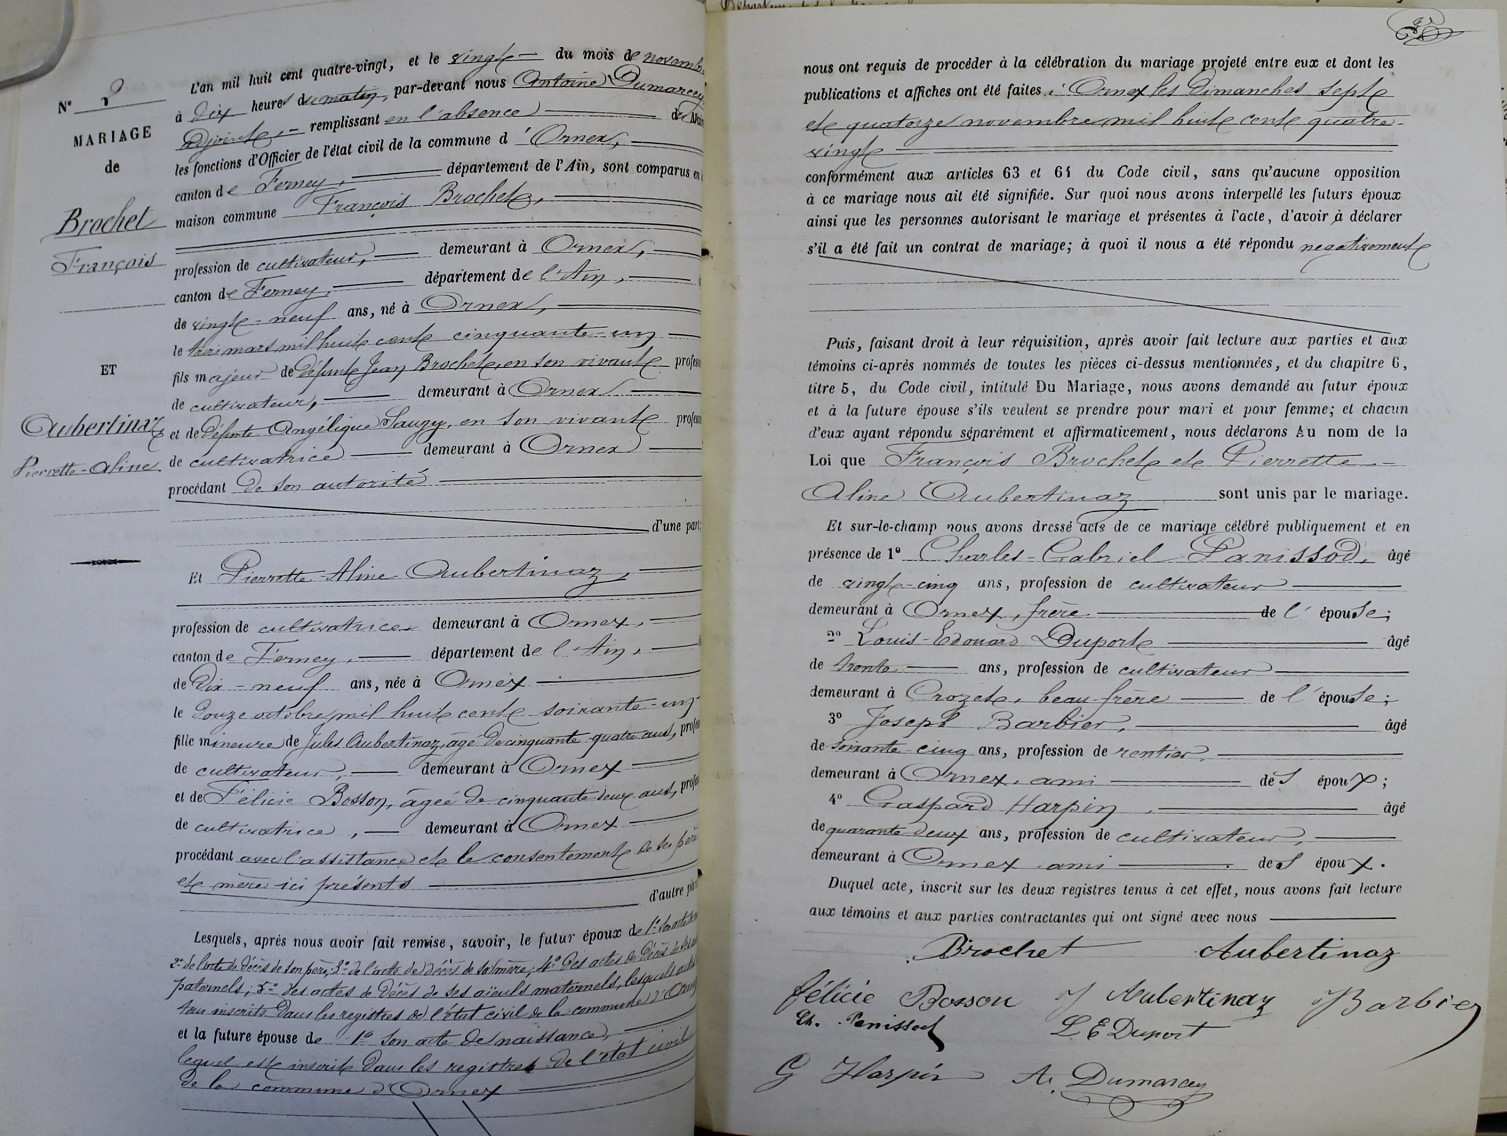 N° 8
MARIAGE
de
Brochet
François
ET
Aubertinaz
Pierrette-Aline
L'an mil huit cent quatre-vingt, et le vingt du mois de novembre
à dix heures du matin, par-devant nous Antoine Dumarcey
Adjoint, remplissant en l'absence du Maire
les fonctions d'Officier de l'état civil de la commune d'Ornex,
canton de Ferney, département de l'Ain, sont comparus en
maison commune François Brochet,
profession de cultivateur, demeurant à Ornex,
canton de Ferney, département de l'Ain,
de vingt-neuf ans, né à Ornex,
le trois mars mil huit cent cinquante-un
fils majeur de défunt Jean Brochet, en son vivant profess
de cultivateur, demeurant à Ornex
et de défunte Angélique Saugy, en son vivant profess
de cultivatrice demeurant à Ornex
procédant de son autorité
d'une part;
Et Pierrette Aline Aubertinaz,
profession de cultivatrice demeurant à Ornex,
canton de Ferney, département de l'Ain,
de dix-neuf ans, née à Ornex
le douze octobre mil huit cent soixante-un
fille mineure de Jules Aubertinaz, âgé de cinquante quatre ans, profes
de cultivateur, demeurant à Ornex
et de Félicie Bosson, âgée de cinquante deux ans, profes
de cultivatrice, demeurant à Ornex
procédant avec l'assistance et le consentement de ses père
et mère ici présents
d'autre part
Lesquels, après nous avoir fait remise, savoir, le futur époux de 1° son acte de
2° de l'acte de décès de son père; 3° de l'acte de décès de sa mère; 4° des actes de décès de ses
paternels; 5° des actes de décès de ses aïeuls maternels, lesquels actes
tous inscrits dans les registres de l'état civil de la commune d'Ornex
et la future épouse de 1° son acte de naissance,
lequel est inscrit dans les registres de l'état civil
de la commune d'Ornex
nous ont requis de procéder à la célébration du mariage projeté entre eux et dont les
publications et affiches ont été faites à Ornex les Dimanches sept
et quatorze novembre mil huit cent quatre-
vingt
conformément aux articles 63 et 64 du Code civil, sans qu'aucune opposition
à ce mariage nous ait été signifiée. Sur quoi nous avons interpellé les futurs époux
ainsi que les personnes autorisant le mariage et présentes à l'acte, d'avoir à déclarer
s'il a été fait un contrat de mariage; à quoi il nous a été répondu negativement
Puis, faisant droit à leur réquisition, après avoir fait lecture aux parties et aux
témoins ci-après nommés de toutes les pièces ci-dessus mentionnées, et du chapitre 6,
titre 5, du Code civil, intitulé Du Mariage, nous avons demandé au futur époux
et à la future épouse s'ils veulent se prendre pour mari et pour femme; et chacun
d'eux ayant répondu séparément et affirmativement, nous déclarons Au nom de la
Loi que François Brochet et Pierrette-
Aline Aubertinaz sont unis par le mariage.
Et sur-le-champ nous avons dressé acte de ce mariage célébré publiquement et en
présence de 1° Charles-Gabriel Panissod, âgé
de vingt-cinq ans, profession de cultivateur
demeurant à Ornex, frère de l'épouse;
2° Louis-Edouard Duport âgé
de trente ans, profession de cultivateur
demeurant à Crozet, beau-frère de l'épouse;
3° Joseph Barbier, âgé
de soixante-cinq ans, profession de rentier,
demeurant à Ornex, ami de l'époux;
4° Gaspard Harpin, âgé
de quarante deux ans, profession de cultivateur,
demeurant à Ornex ami de l'époux.
Duquel acte, inscrit sur les deux registres tenus à cet effet, nous avons fait lecture
aux témoins et aux parties contractantes qui ont signé avec nous
Brochet Aubertinaz
félicie Bosson J Aubertinaz J Barbier
Ch. Panissod L E Duport
G Harpin A. Dumarcey